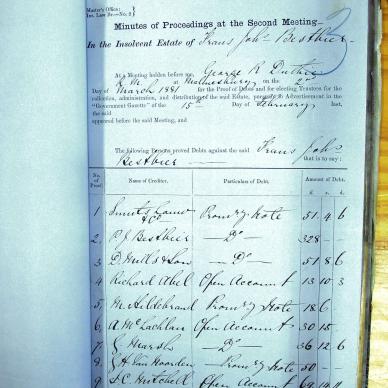 Master's Office:
Ins. Law Br.—No. 2
Minutes of Proceedings at the Second Meeting—
In the Insolvent Estate of Frans Johs Bestbier
At a Meeting holden before me, George R
R M at Malmesbury on the 2nd
Day of March 1881 for the Proof of Debts and for electing Trustees for the
collection, administration, and distribution of the said Estate, pursuant to Advertisement in the
"Government Gazette" of the 15th Day of February last,
the said
appeared before the said Meeting, and
The following Persons proved Debts against the said Frans Johs
Bestbier that is to say:
No. of Proof. Name of Creditor. Particulars of Debt. Amount of Debt.
£ s. d.
1 & Co Promry Note 51 4 6
2. P. J. Bestbier — Do — 328 — —
3 D. Mills & Son — Do — 51 8 6
4 Richard Abel Open Account 13 10 3
5 M. Hildebrand Promry Note 18 6
6 A McLachlan Open Account 30 15
7 Marsh — Do — 36 12 6
8 Van Noorden Promry Note 50 — —
9 S. C. Mitchell Open Account